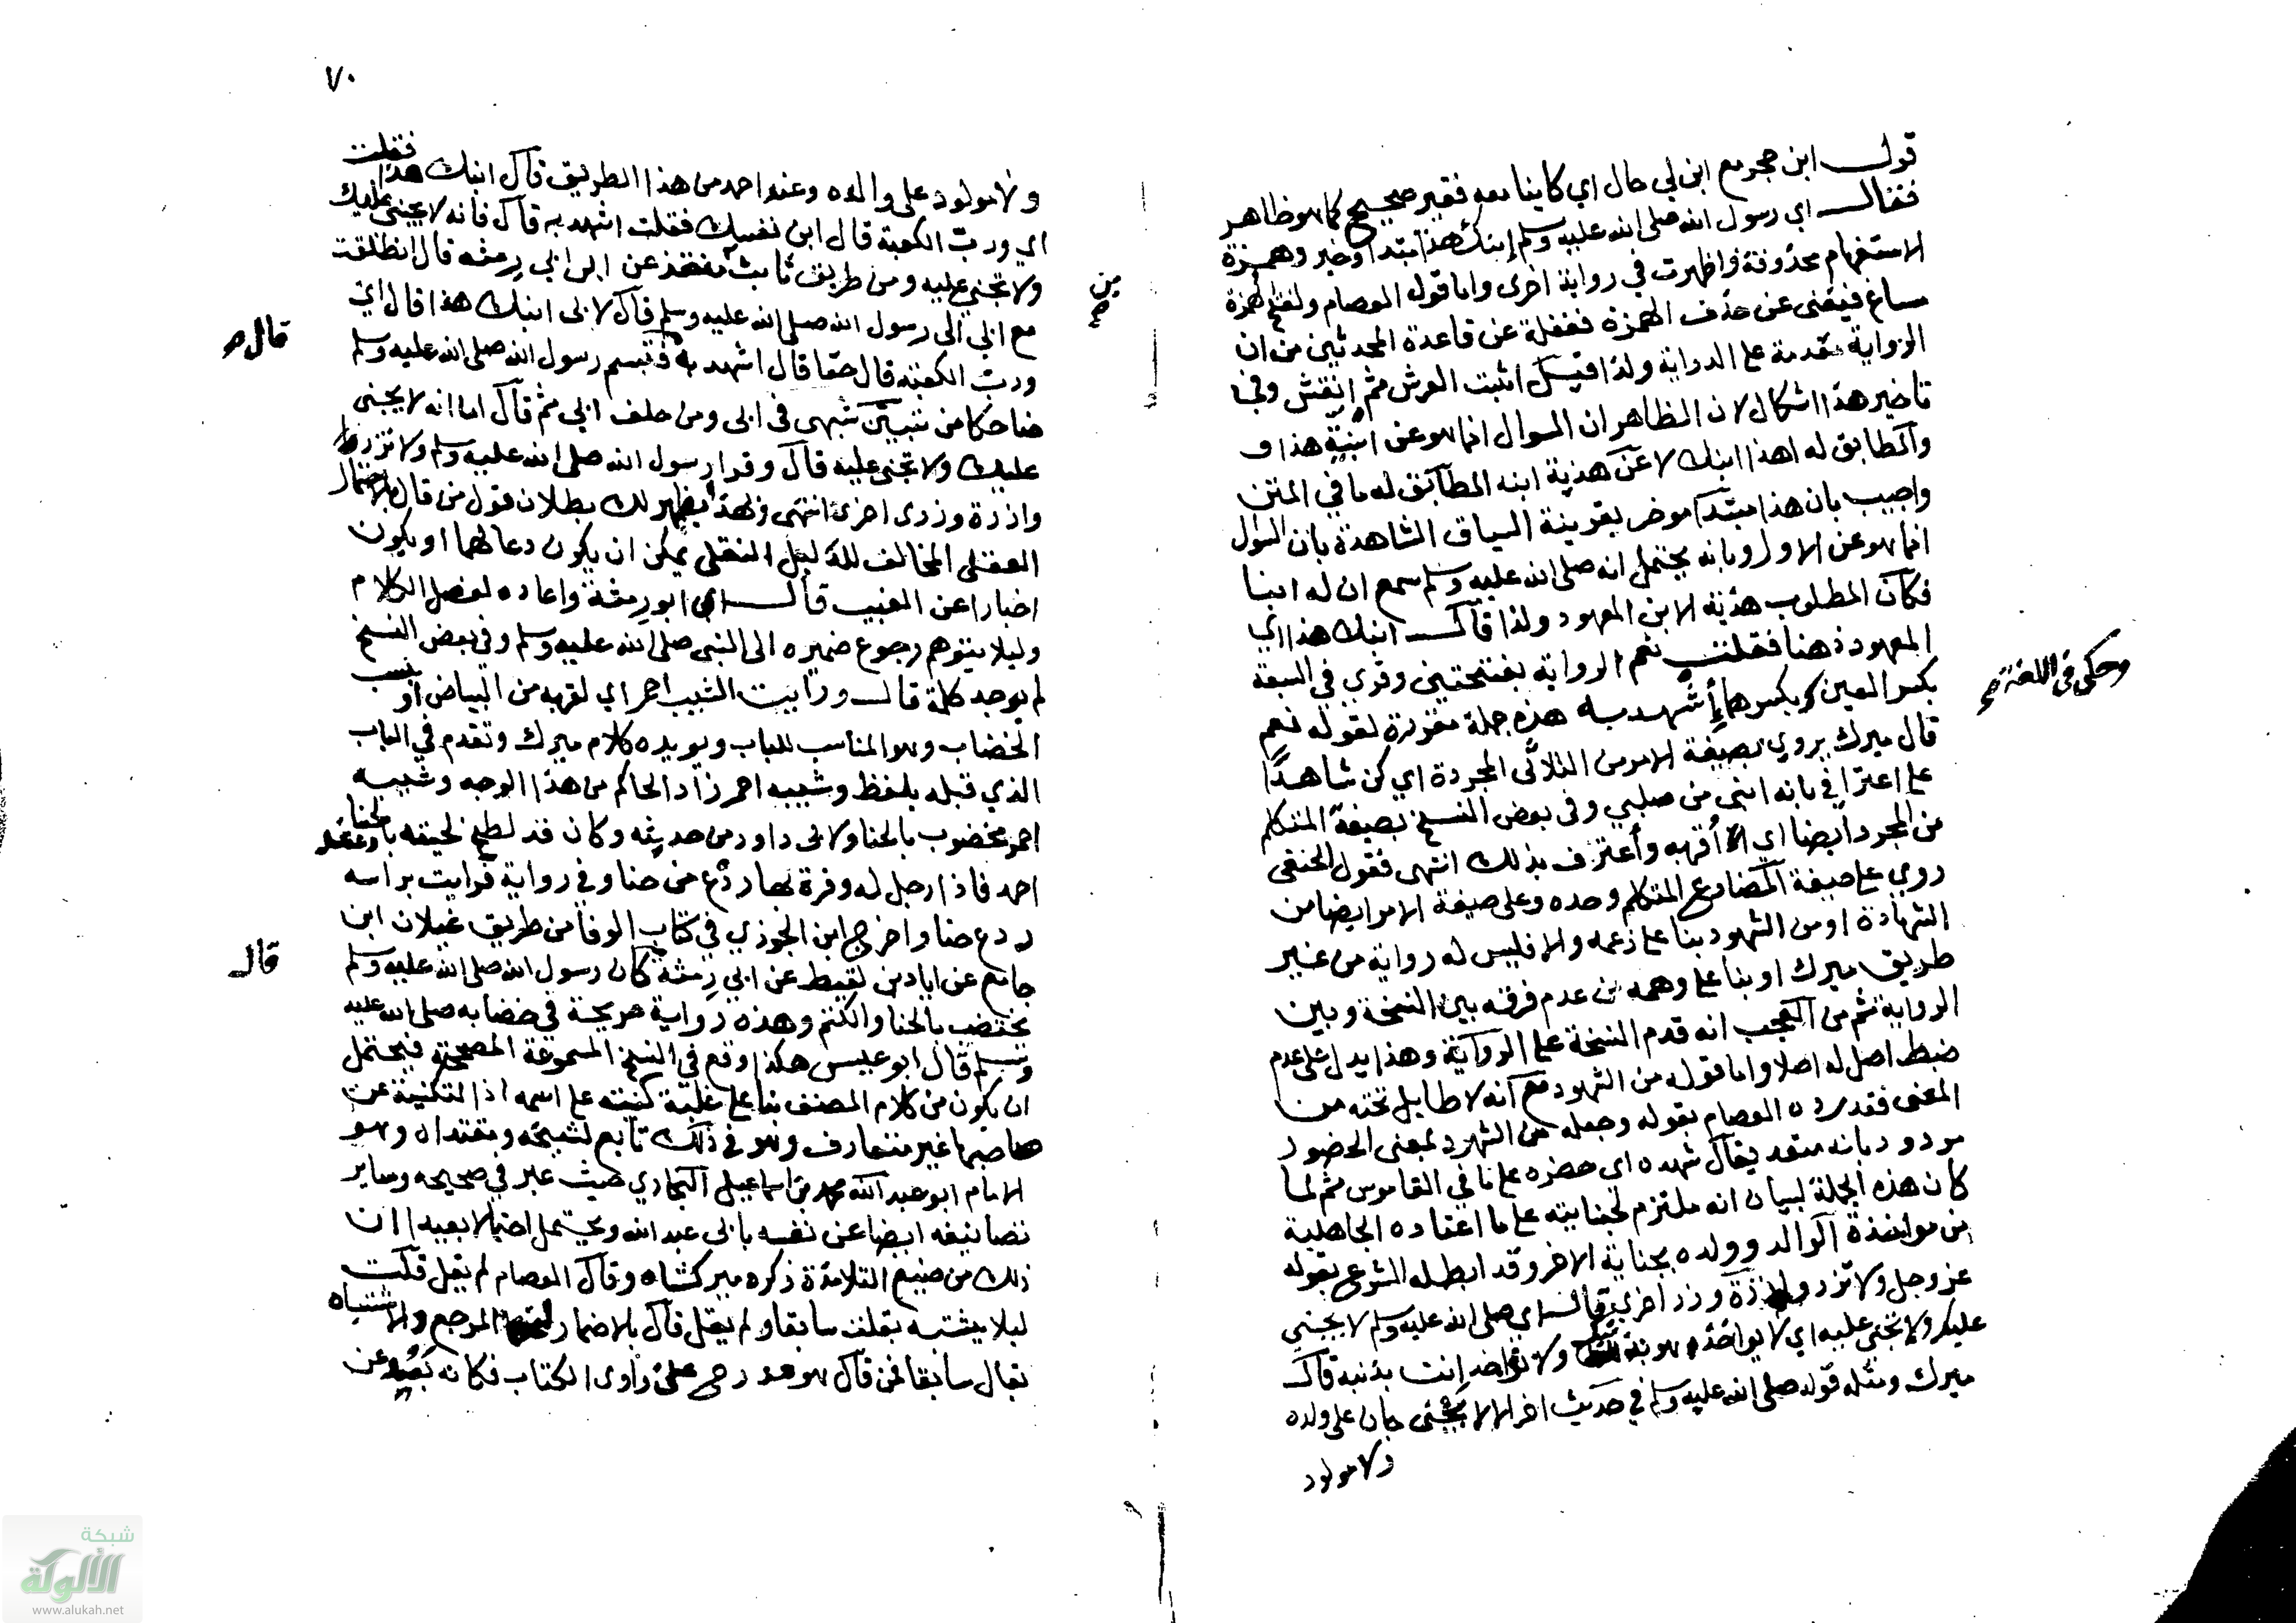 قول ابن حجر مع ابن لي حال اي كاينا معه فغير صحيح كما هو ظاهر
فقال اي رسول الله صلى الله عليه وسلم ابنك هذا مبتدا وخبر وهمزة
الاستفهام محذوفة واظهرت في رواية اخرى واما قول العصام ولفتح الهمزة
مساغ فيغني عن حذف الهمزة فغفلة عن قاعدة المحدثين من ان
الرواية مقدمة على الدراية ولذا قيل اثبت العرش ثم انقش وفي
تاخير هذا اشكال لان الظاهر ان السوال انما هو عن ابنية هذا و
والمطابق له اهذا ابنك لا عن هذية ابنه المطابق له ما في المتن
واجيب بان هذا مبتدا موخر بقرينة السياق الشاهدة بان السوال
انما هو عن الاول وبانه يحتمل انه صلى الله عليه وسلم سمع ان له ابنا
فكان المطلوب هذية الابن المعهود ولذا قال ابنك هذا اي
المعهود ذهنا فقلت نعم الرواية بفتحتين وقري في السبعة
بكسر العين وبكسرهما أشهد به هذه جملة مقررة لقوله نعم
وحكي في اللغة صح
قال ميرك يروي بصيغة الامر من الثلاثي المجردة اي كن شاهدًا
على اعترافي بانه ابني من صلبي وفي بعض النسخ بصيغة المتكلم
من المجرد ايضا اي أقر به وأعترف بذلك انتهى فقول الحنفي
روي على صيغة المضارع المتكلم وحده وعلى صيغة الامر ايضا من
الشهادة او من الشهود بنا على زعمه والا فليس له رواية من غير
طريق ميرك او بنا على وهمه من عدم فرقه بين النسخة وبين
الرواية ثم من العجب انه قدم النسخة على الرواية وهذا يدل على عدم
ضبط اصل له اصلا واما قوله من الشهود مع انه لا طايل تحته من
المعنى فقد رده العصام بقوله وجعله من الشهود بمعنى الحضور
مردود بانه متعد يقال شهده اي حضره على ما في القاموس ثم لما
كان هذه الجملة لبيان انه ملتزم لجنايته على ما اعتاده الجاهلية
من مواخذة الوالد وولده بجناية الاخر وقد ابطله الشرع بقوله
عز وجل ولا تزر وازرة وزر اخرى قال اي صلى الله عليه وسلم لا يجني
عليك ولا تجني عليه اي لا يواخذ هو بذنبك ولا تواخذ انت بذنبه قال
ميرك ومثله قوله صلى الله عليه وسلم في حديث اخر الا لا يجني جان على ولده
ولا مولود
٧٠
ولا مولود على والده وعند احمد من هذا الطريق قال ابنك هذا فقلت
اي ورب الكعبة قال ابن نفسك فقلت اشهد به قال فانه لا يجني عليك
ولا تجني عليه ومن طريق ثابت بن منقذ عن ابي رمثة قال انطلقت
من صح
مع ابي الى رسول الله صلى الله عليه وسلم قال لابي ابنك هذا قال اي
ورب الكعبة قال حقا قال اشهد به فتبسم رسول الله صلى الله عليه وسلم
قال صح
ضاحكا من تبيين شبهي في ابي ومن حلف ابي ثم قال اما انه لا يجني
عليك ولا تجني عليه قال وقرا رسول الله صلى الله عليه وسلم ولا تزر
وازرة وزر اخرى انتهى ولهذا يظهر لك بطلان قول من قال بالاحتمال
العقلي المخالف للدليل النقلي يمكن ان يكون دعا لهما او يكون
اخبارا عن الغيب قال اي ابو رمثة واعاده لفصل الكلام
وليلا يتوهم رجوع ضميره الى النبي صلى الله عليه وسلم وفي بعض النسخ
لم يوجد كلمة قال ورايت الشيب احمر اي لقربه من البياض او بسبب
الخضاب وهو المناسب للباب ويويده كلام ميرك وتقدم في الباب
الذي قبله بلفظ وشيبه احمر زاد الحاكم من هذا الوجه وشيبه
احمر مخضوب بالحنا ولابي داود من حديثه وكان قد لطخ لحيته بالحنا وعند
احمد فاذا رجل له وفرة بها ردع من حنا وفي رواية فرايت براسه
ردع حنا واخرج ابن الجوزي في كتاب الوفا من طريق غيلان ابن
جامع عن اياد بن لقيط عن ابي رمثة كان رسول الله صلى الله عليه وسلم
قال
يختضب بالحنا والكتم وهذه رواية صريحة في خضابه صلى الله عليه
وسلم قال ابو عيسى هكذا وقع في النسخ المسموعة المصححة فيحتمل
ان يكون من كلام المصنف بنا على غلبة كنيته على اسمه اذ التكنية عن
صاحبها غير متعارف وهو في ذلك تابع لشيخه ومقتداه وهو
الامام ابو عبد الله محمد بن اسماعيل البخاري حيث عبر في صحيحه وساير
تصانيفه ايضا عن نفسه بابي عبد الله ويحتمل احتمالا بعيدا ان
ذلك من صنيع التلامذة ذكره ميرك شاه وقال العصام لم يقل قلت
ليلا يشتبه بقلت سابقا ولم يقل قال بالاضمار المرجع والاشتباه
بقال سابقا فمن قال هو هو رجح على راوي الكتاب فكانه بعيد عن